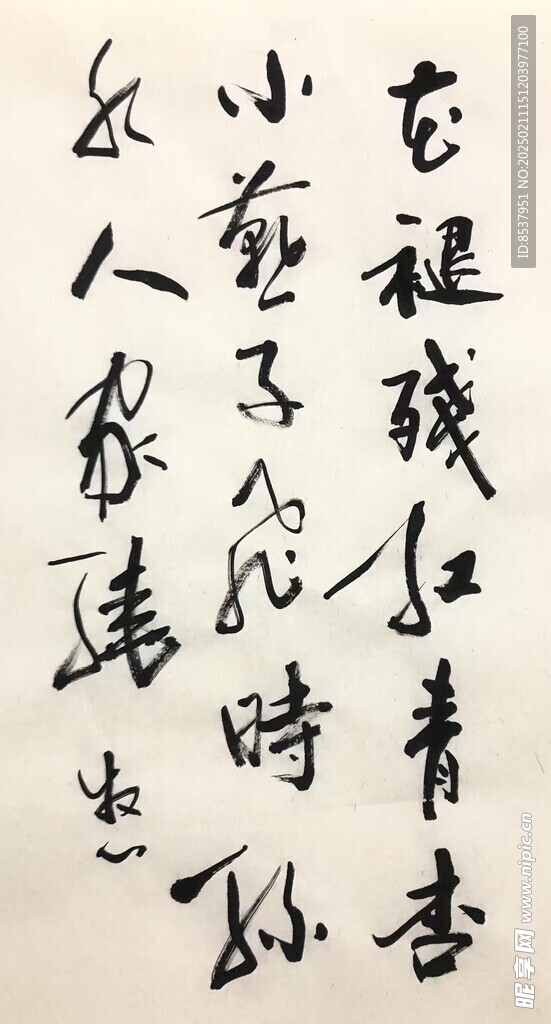 花褪殘紅青杏
小燕子飛時綠
水人家繞
ID:8537951 NO:20250211151203977100
昵享网 www.nipic.cn